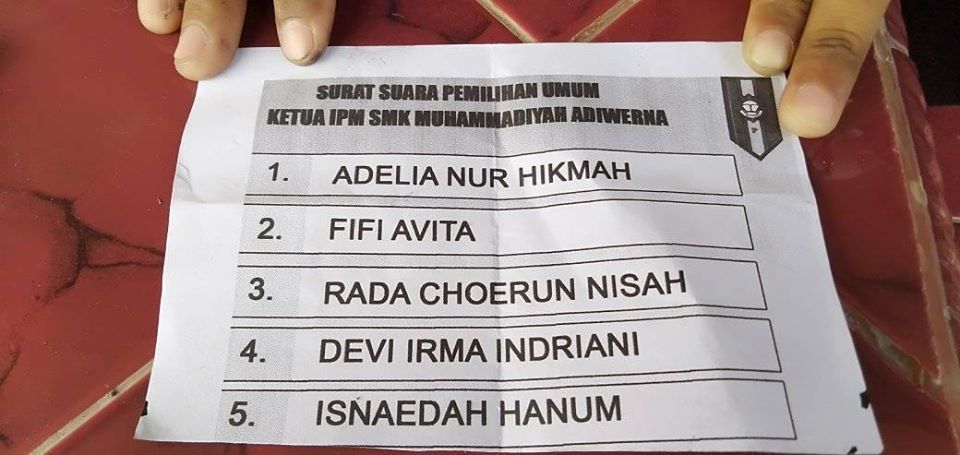 SURAT SUARA PEMILIHAN UMUM
KETUA IPM SMK MUHAMMADIYAH ADIWERNA
1. ADELIA NUR HIKMAH
2. FIFI AVITA
3. RADA CHOERUN NISAH
4. DEVI IRMA INDRIANI
5. ISNAEDAH HANUM